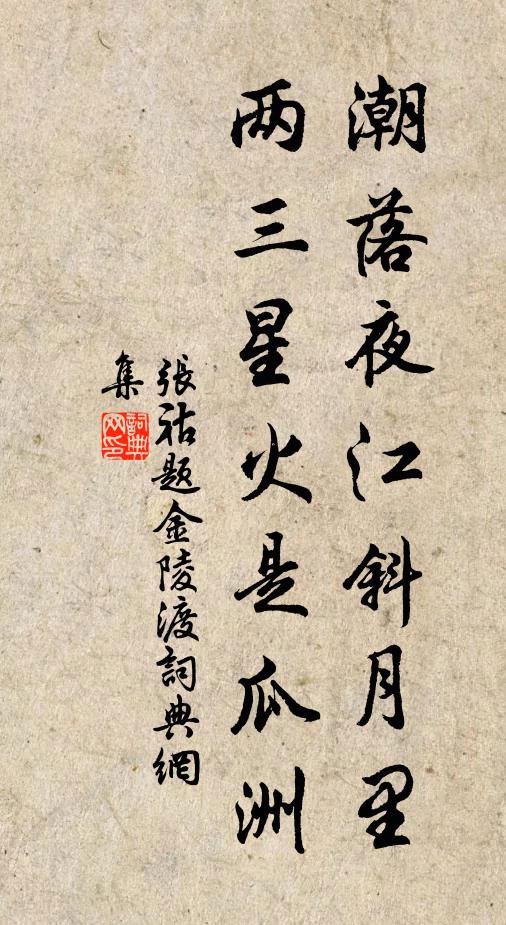 潮落夜江斜月里
两三星火是瓜洲
張祜題金陵渡詞典網
集
詞典网印